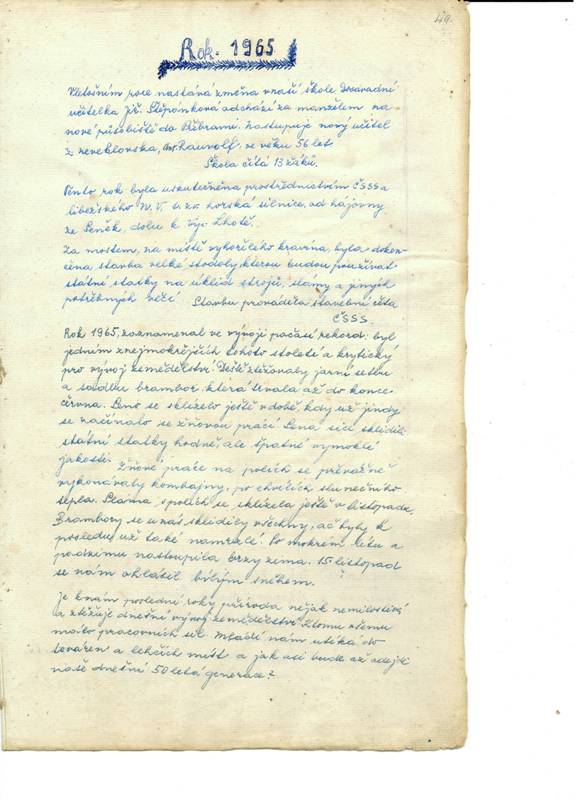 49.
Rok 1965
V letošním roce nastává změna v naší škole Dosavadní
učitelka Jiř. Štěpánková odchází za manželem na
nové působiště do Příbrami. Nastupuje nový učitel
z neveklovska, Ant. Rauvolf, ve věku 56 let.
Škola čítá 13 žáků.
Tento rok byla uskutečněna prostřednictvím ČSSS a
libežského M.V. t. zv. horská silnice, od hájovny
ze Peněk, dolu k Lhotě.
Za mostem, na místě vyhořelého kravína, byla dokon-
čena stavba velké stodoly, kterou budou používat
státní statky na úklid strojů, slámy a jiných
potřebných věcí Stavbu prováděla stavební četa
ČSSS.
Rok 1965, zaznamenal ve vývoji počasí rekord: byl
jedním z nejmokřejších tohoto století a krytický
pro vývoj zemědělství. Deště ztěžovaly jarní setbu
a sadbu brambor, která trvala až do konce
června. Seno se sklízelo ještě v době, kdy už jindy
se začínalo se žňovou prací. Sena sice sklidili
státní statky hodně, ale špatné vymoklé
jakosti. Žňové práce na polích se převážně
vykonávaly kombajny, po chvílích slunečního
tepla. Sláma s polích se sklízela ještě v listopadu.
Brambory se u nás sklidily všechny, ač byly k
posledu už také namrzlé. Po mokrém létu a
podzimu nastoupila brzy zima. 15. listopad
se nám ohlásil bílým sněhem.
Je k nám poslední roky příroda nějak nemilostivá
a ztěžuje dnešní vývoj zemědělství. K tomu všemu
málo pracovních sil. Mládí nám utíká do
továren a lehčích míst a jak asi bude až odejde
naše dnešní 50 letá generace?